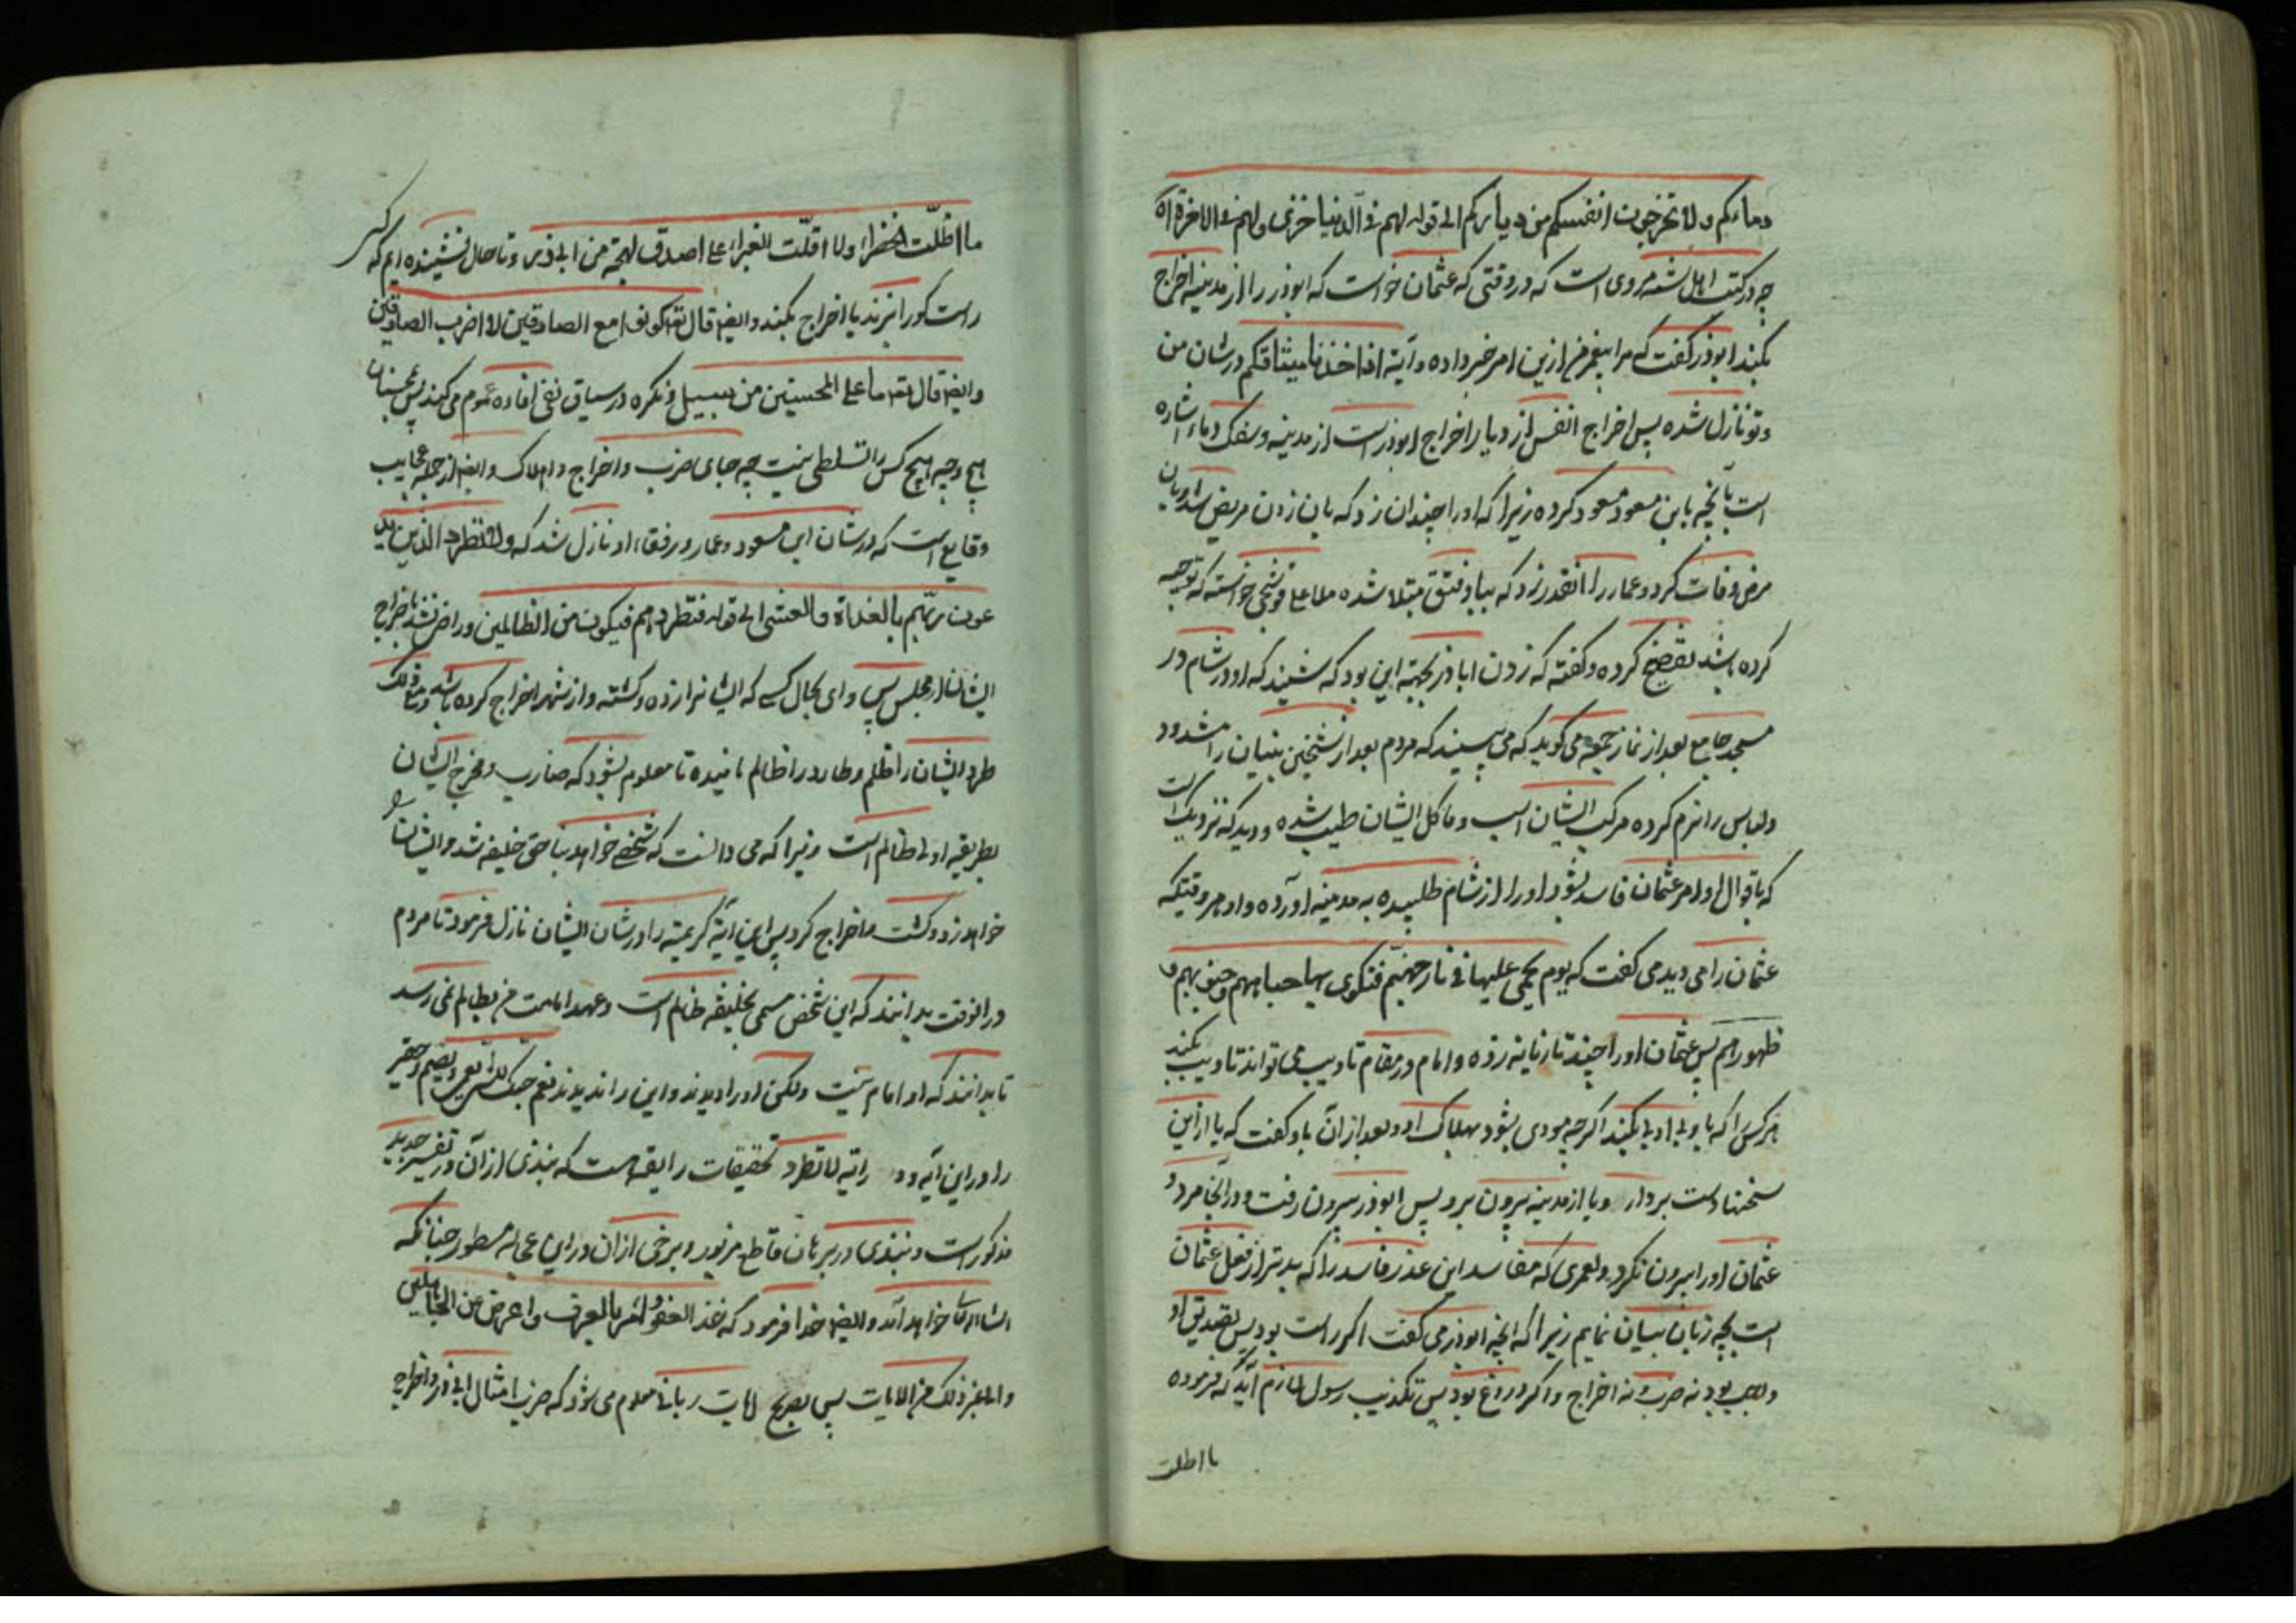 دماءکم ولا تخرجون انفسکم من دیارکم الی قوله لهم فی الدنیا خزی ولهم فی الاخرة آه
چه در کتب اهل سنه مروی است که در وقتی که عثمان خواست که ابوذر را از مدینه اخراج
بکند ابوذر گفت که مرا پیغمبر ازین امر خبر داده و آیة اذا اخذنا میثاقکم در شان من
و تو نازل شده پس اخراج انفس از دیار اخراج ابوذر است از مدینه و سفک دماء اشاره
است بآنچه باین مسعود کرده زیرا که او را چندان زد که بان زدن مریض شد و بان
مرض وفات کرد و عمار را انقدر زد که ببا و فتق مبتلا شده ملا علی قوشجی خواسته که توجیه
کرده باشد تفضیح کرده و گفته که زدن اباذر بجهة این بود که شنیند که او در شام در
مسجد جامع بعد از نماز جمعه می گوید که می بینید که مردم بعد از شیخین بنیان را مشدود
و لباس را نرم کرده مرکب ایشان اسب و ماکل ایشان طیب شده و دید که نزدیک است
که باقوال او امر عثمان فاسد بشود او را از شام طلبیده به مدینه آورده و او هر وقتیکه
عثمان را می دید می گفت که یوم یحمی علیها فی نار جهنم فتکوی بها جباههم و جنوبهم و
ظهورهم پس عثمان او را چند تازیانه زده و امام در مقام تادیب می تواند تادیب بکند
هر کس را که با و بی ادبی بکند اگر چه مودی بشود بهلاک او و بعد از آن باو گفت که یا ازین
سخنها دست بردار و یا از مدینه بیرون برو پس ابوذر بیرون رفت و در آنجا مرد و
عثمان او را بیرون نکرد و لعمری که مفاسد این عذر فاسد را که بدتر از فعل عثمان
است بچه زبان بیان نمایم زیرا که آنچه ابوذر می گفت اگر راست بود پس تصدیق او
واجب بود نه ضرب و نه اخراج و اگر دروغ بود پس تکذیب رسول لازم آید که فرموده
ما اظلت
ما اظلّت الخضراء ولا اقلّت الغبراء علی اصدق لهجة من ابی ذر و تا حال نشینده ایم که کسی
راست کو را بزند یا اخراج بکند و ایضا قال تع کونوا مع الصادقین لا اضرب الصادقین
و ایضا قال تع ما علی المحسنین من سبیل و نکره در سیاق نفی افاده عموم می کند پس بر محسنان
بهیچ وجه هیچ کس را تسلطی نیست چه جای ضرب و اخراج و اهلاک و ایضا از جمله عجایب
وقایع است که در شان ابن مسعود و عمار و رفقاء او نازل شد که ولا تطرد الذین ید
عون ربّهم بالغداة والعشی الی قوله فتطردهم فتکون من الظالمین و راضی نشد باخراج
ایشان از مجلس پس وای بحال کسی که ایشانرا زده و کشته و از شهر اخراج کرده باشد و مع ذلک
طرد ایشان را ظلم و طارد را ظالم نامیده تا معلوم بشود که ضارب و مخرج ایشان
بطریقه اولی ظالم است زیرا که می دانست که شخصی خواهد بناحق خلیفه شد و ایشان را
خواهد زد و کشت و اخراج کرد پس این آیة کریمه را در شان ایشان نازل فرمود تا مردم
در انوقت بدانند که این شخص مسمی بخلیفه ظالم است و عهد امامت من بظالم نمی رسد
تا بدانند که او امام نیست ولکن او را دیدند و این را ندیدند نعم حبک للشی یعمی و یصم و حقیر
را در این آیه و در آیة لا تطرد تحقیقات رایقه است که نبذی از آن در تفسیر جدید
مذکور است و نبذی در برهان قاطع مزبور و برخی از آن در این عجاله مسطور چنانکه
انشاالله تعا خواهد آمد و ایضا خدا فرمود که خذ العفو وامر بالعرف و اعرض عن الجاهلین
و الی غیر ذلک من الایات پس بصریح ایات ربانی معلوم می شود که ضرب امثال ابی ذر و اخراج